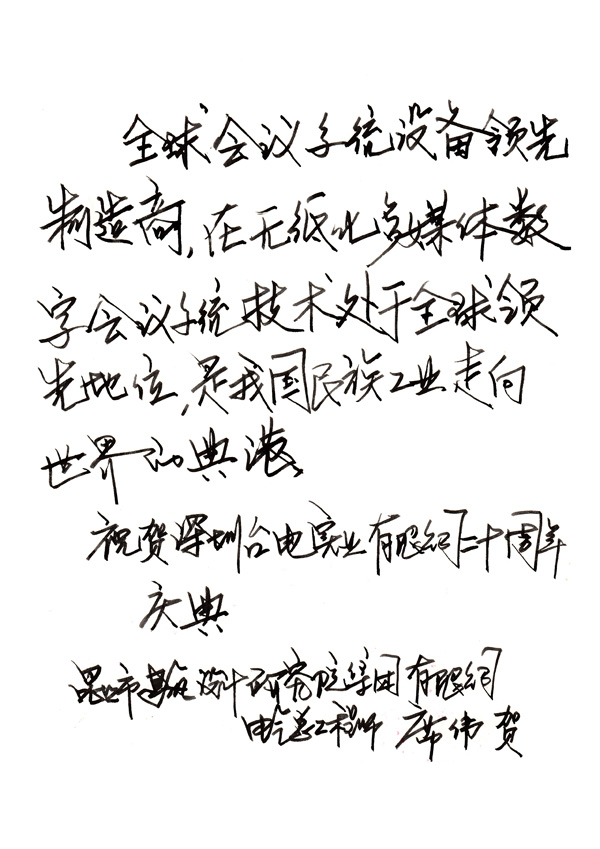 全球会议系统设备领先
制造商,在无纸化多媒体数
字会议系统技术处于全球领
先地位,是我国民族工业走向
世界的典范
祝贺深圳台电实业有限公司二十周年
庆典
昆明市建筑设计研究院集团有限公司
电气总工程师 席伟贺